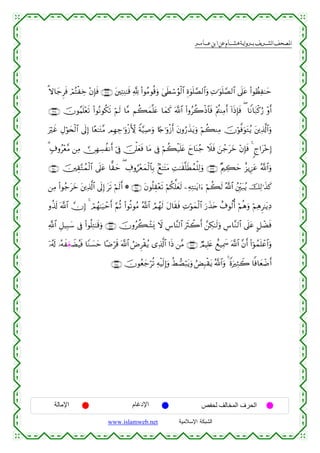 المصحف الشريف برواية هشام عن ابن عامر
حَٰفِظُوا۟ عَلَى ٱلصَّلَوَٰتِ وَٱلصَّلَوٰةِ ٱلْوُسْطَىٰ وَقُومُوا۟ لِلَّهِ قَٰنِتِينَ فَإِنْ خِفْتُمْ فَرِجَالًا
أَوْ رُكْبَانًا ۖ فَإِذَآ أَمِنتُمْ فَٱذْكُرُوا۟ ٱللَّهَ كَمَا عَلَّمَكُم مَّا لَمْ تَكُونُوا۟ تَعْلَمُونَ
وَٱلَّذِينَ يُتَوَفَّوْنَ مِنكُمْ وَيَذَرُونَ أَزْوَٰجًا وَصِيَّةً لِّأَزْوَٰجِهِم مَّتَٰعًا إِلَى ٱلْحَوْلِ غَيْرَ
إِخْرَاجٍ ۚ فَإِنْ خَرَجْنَ فَلَا جُنَاحَ عَلَيْكُمْ فِى مَا فَعَلْنَ فِىٓ أَنفُسِهِنَّ مِن مَّعْرُوفٍ ۗ
وَٱللَّهُ عَزِيزٌ حَكِيمٌ وَلِلْمُطَلَّقَٰتِ مَتَٰعٌۢ بِٱلْمَعْرُوفِ ۖ حَقًّا عَلَى ٱلْمُتَّقِينَ
كَذَٰلِكَ يُبَيِّنُ ٱللَّهُ لَكُمْ ءَايَٰتِهِۦ لَعَلَّكُمْ تَعْقِلُونَ ۞ أَلَمْ تَرَ إِلَى ٱلَّذِينَ خَرَجُوا۟ مِن
دِيَٰرِهِمْ وَهُمْ أُلُوفٌ حَذَرَ ٱلْمَوْتِ فَقَالَ لَهُمُ ٱللَّهُ مُوتُوا۟ ثُمَّ أَحْيَٰهُمْ ۚ إِنَّ ٱللَّهَ لَذُو
فَضْلٍ عَلَى ٱلنَّاسِ وَلَٰكِنَّ أَكْثَرَ ٱلنَّاسِ لَا يَشْكُرُونَ وَقَٰتِلُوا۟ فِى سَبِيلِ ٱللَّهِ
وَٱعْلَمُوٓا۟ أَنَّ ٱللَّهَ سَمِيعٌ عَلِيمٌ مَّن ذَا ٱلَّذِى يُقْرِضُ ٱللَّهَ قَرْضًا حَسَنًا فَيُضَعِّفَهُۥ لَهُۥٓ
أَضْعَافًا كَثِيرَةً ۚ وَٱللَّهُ يَقْبِضُ وَيَبْصُۜطُ وَإِلَيْهِ تُرْجَعُونَ
الحرف المخالف لحفص الإدغام الإمالة
الشبكة الإسلامية www.islamweb.net